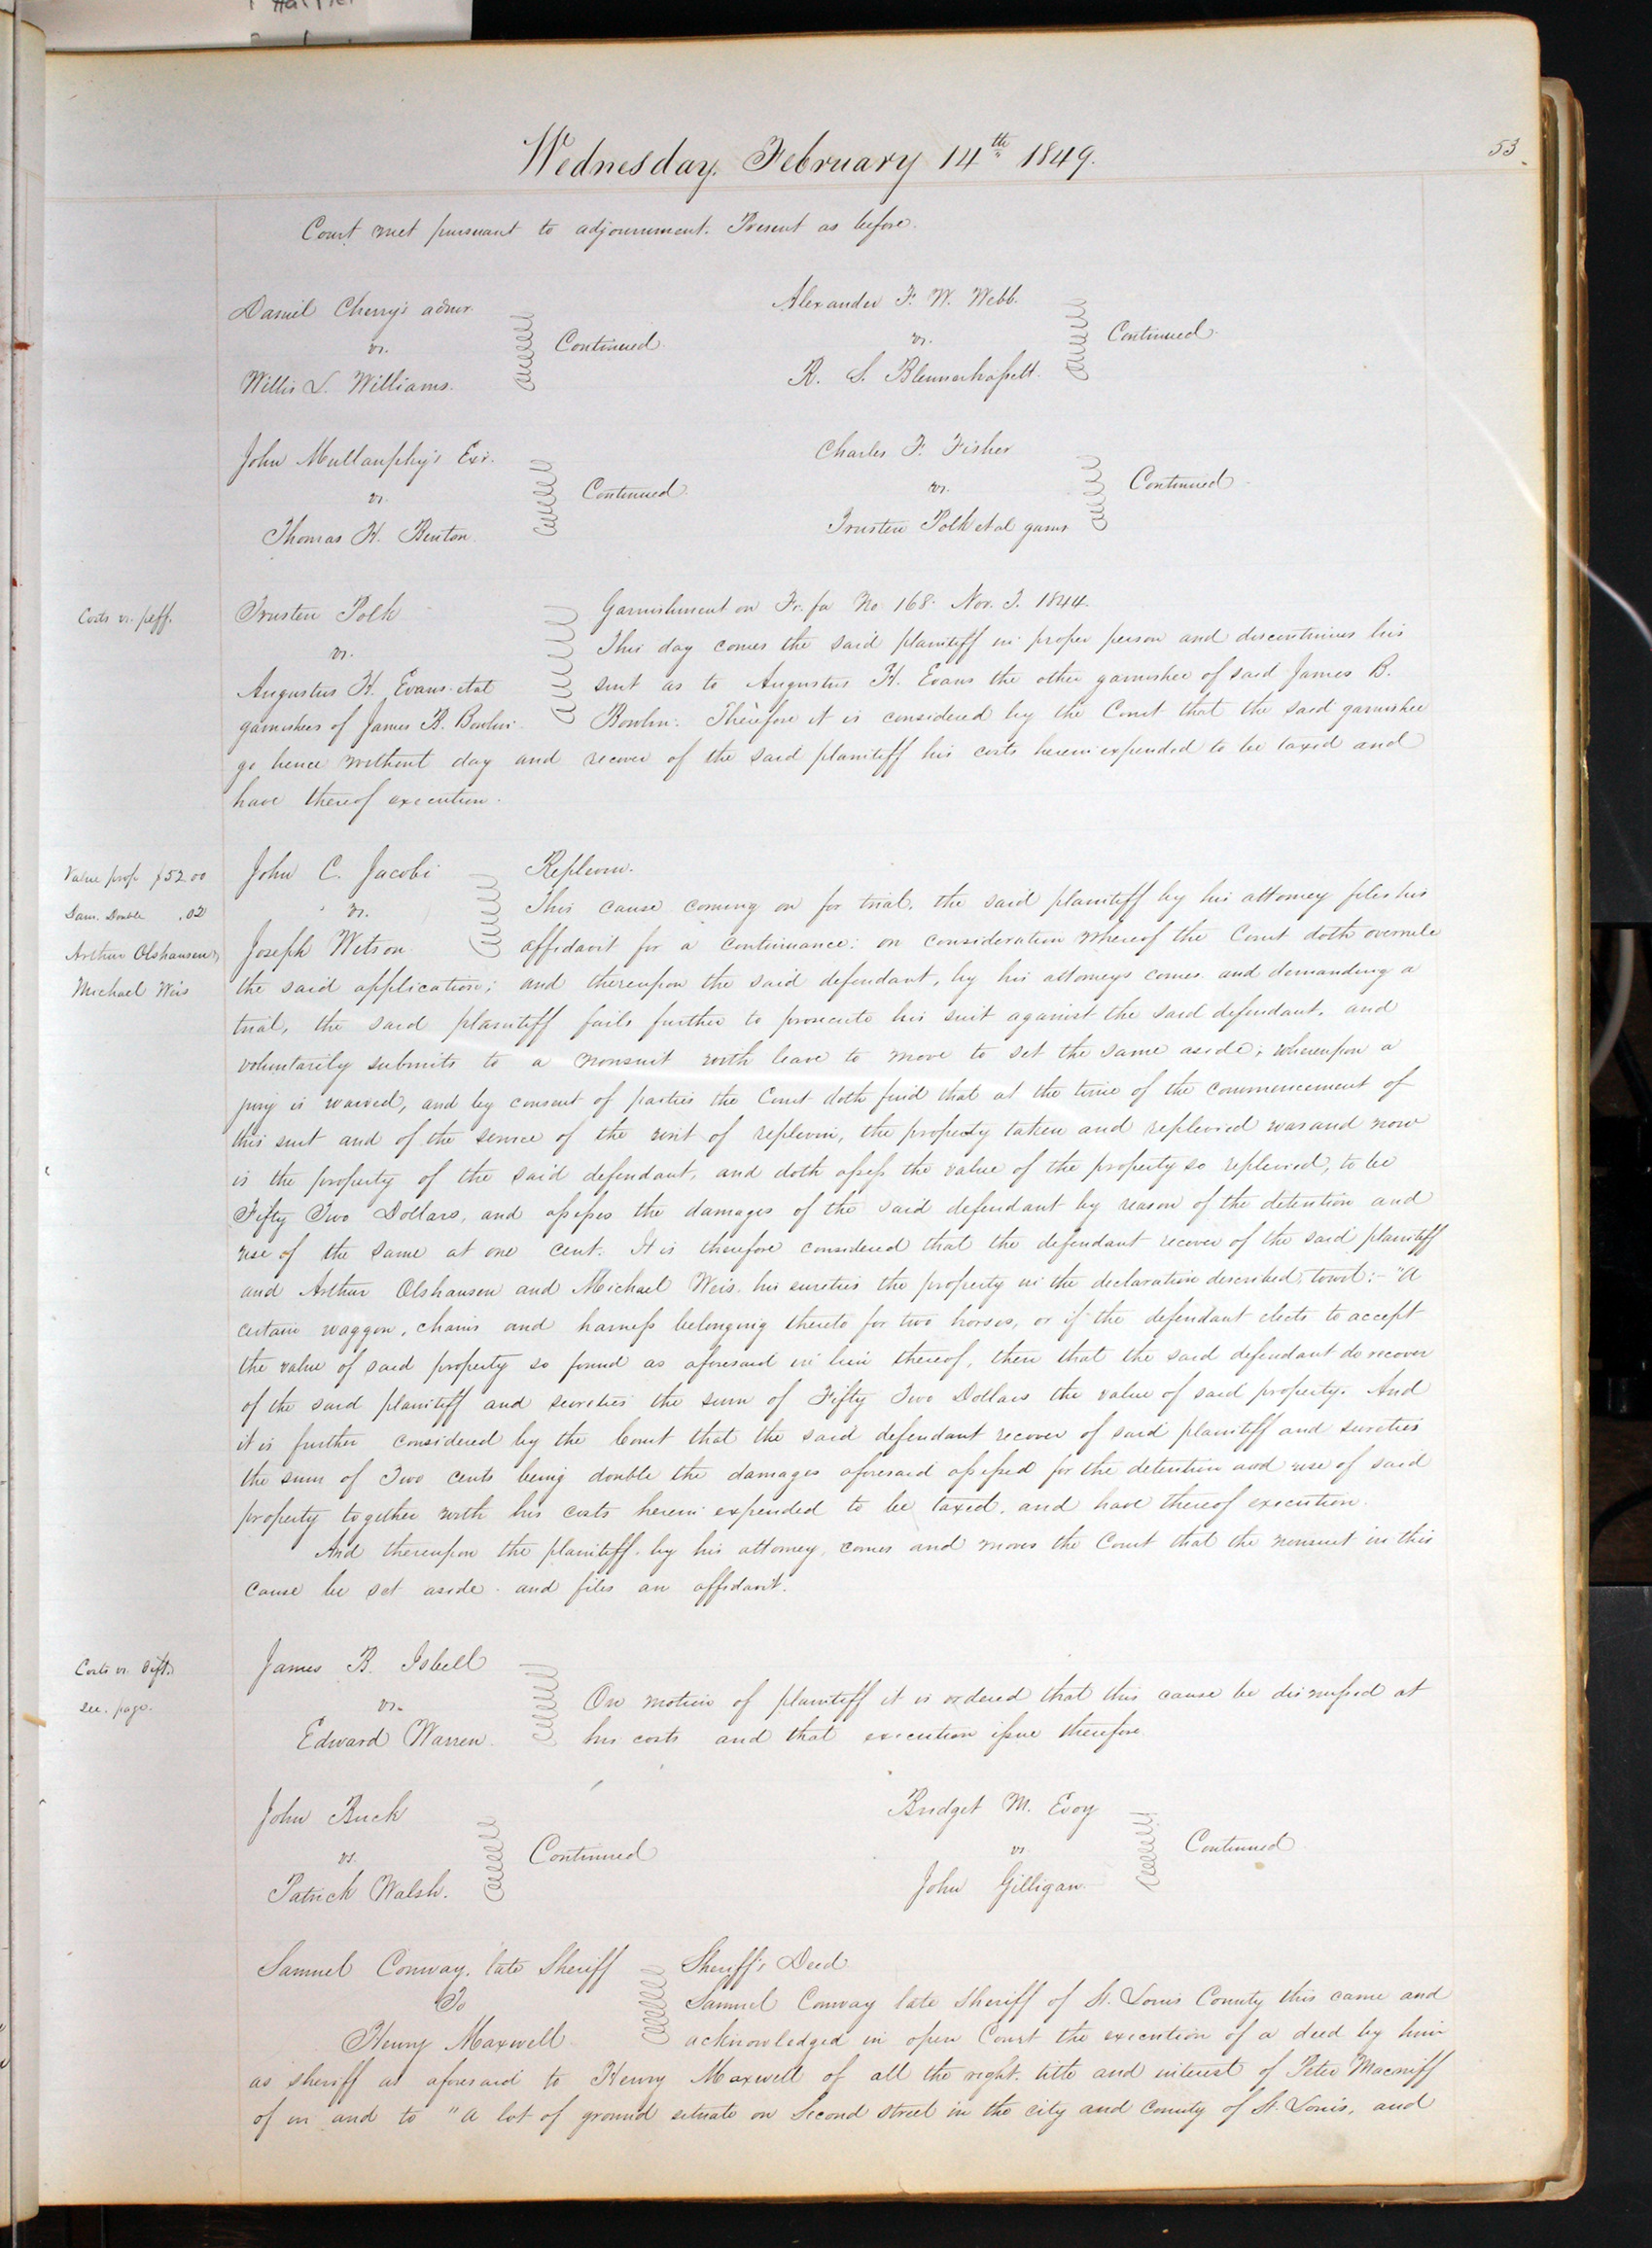 Wednesday, February 14th 1849.
53
Court met pursuant to adjournment. Present as before.
Daniel Cherry's admr.
vs.
Willis L. Williams.
Continued.
Alexander F. W. Webb.
vs.
R. S. Blennerhassett.
Continued.
John Mullanphy's Exr.
vs.
Thomas H. Benton.
Continued.
Charles F. Fisher
vs.
Trusten Polk et al garns
Continued.
Costs vs. plff.
Trusten Polk
vs.
Augustus H. Evans et al
garnishees of James B. Bowlin.
Garnishment on Fi. fa No. 168. Nov. T. 1844.
This day comes the said plaintiff in proper person and discontinues his
suit as to Augustus H. Evans the other garnishee of said James B.
Bowlin. Therefore it is considered by the Court that the said garnishee
go hence without day and recover of the said plaintiff his costs herein expended to be taxed and
have thereof execution.
Value prop $52.00
Dam. Double .02
Arthur Olshausen,
Michael Weis
John C. Jacobi
vs.
Joseph Wetson
Replevin.
This cause coming on for trial, the said plaintiff by his attorney files his
affidavit for a continuance: on consideration whereof the Court doth overrule
the said application; and thereupon the said defendant, by his attorneys comes and demanding a
trial, the said plaintiff fails further to prosecute his suit against the said defendant, and
voluntarily submits to a nonsuit with leave to move to set the same aside; whereupon a
jury is waived, and by consent of parties the Court doth find that at the time of the commencement of
this suit and of the service of the writ of replevin, the property taken and replevied was and now
is the property of the said defendant, and doth assess the value of the property so replevied, to be
Fifty Two Dollars, and assesses the damages of the said defendant by reason of the detention and
use of the same at one cent. It is therefore considered that the defendant recover of the said plaintiff
and Arthur Olshausen and Michael Weis his sureties the property in the declaration described, towit:- "A
certain waggon, chains and harness belonging thereto for two horses, or if the defendant elects to accept
the value of said property so found as aforesaid in lieu thereof, then that the said defendant do recover
of the said plaintiff and sureties the sum of Fifty Two Dollars the value of said property. And
it is further considered by the Court that the said defendant recover of said plaintiff and sureties
the sum of Two cents being double the damages aforesaid assessed for the detention and use of said
property together with his costs herein expended to be taxed, and have thereof execution.
And thereupon the plaintiff by his attorney, comes and moves the Court that the nonsuit in this
cause be set aside and files an affidavit.
Costs vs. Dift.
see. page.
James B. Isbell
vs.
Edward Warren.
On motion of plaintiff it is ordered that this cause be dismissed at
his costs and that execution issue therefore.
John Buck
vs.
Patrick Walsh.
Continued
Bridget M. Evoy
vs
John Gilligan.
Continued
Samuel Conway, late Sheriff
To
Henry Maxwell
Sheriff's Deed
Samuel Conway late Sheriff of St. Louis County this came and
acknowledged in open Court the execution of a deed by him
as sheriff as aforesaid to Henry Maxwell of all the right, title and interest of Peter
of in and to "A lot of ground situate on Second street in the city and County of St. Louis, and